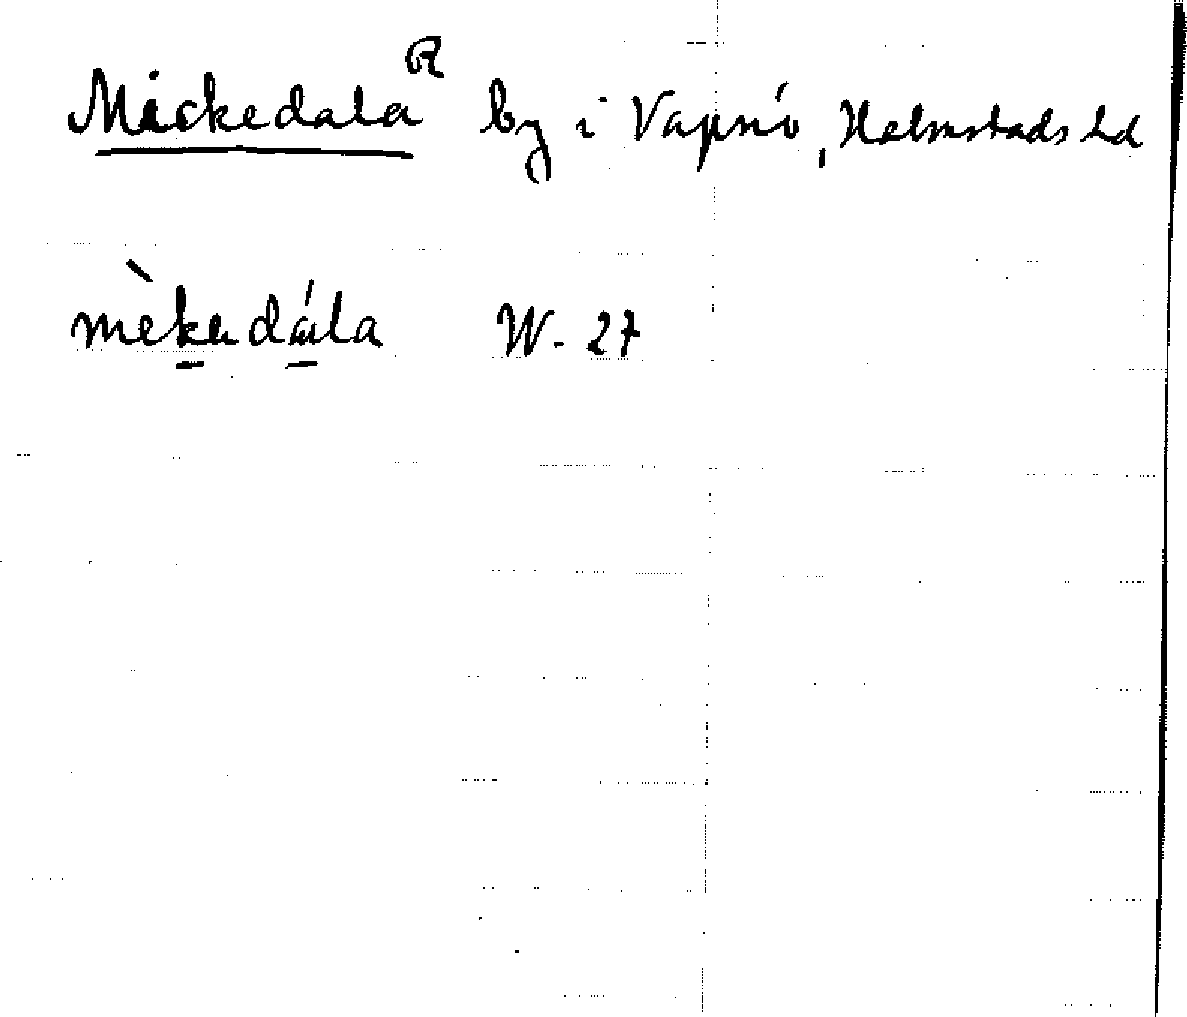 Mickedala R by i Vapnö, Halmstads hd
mèkedála W-27